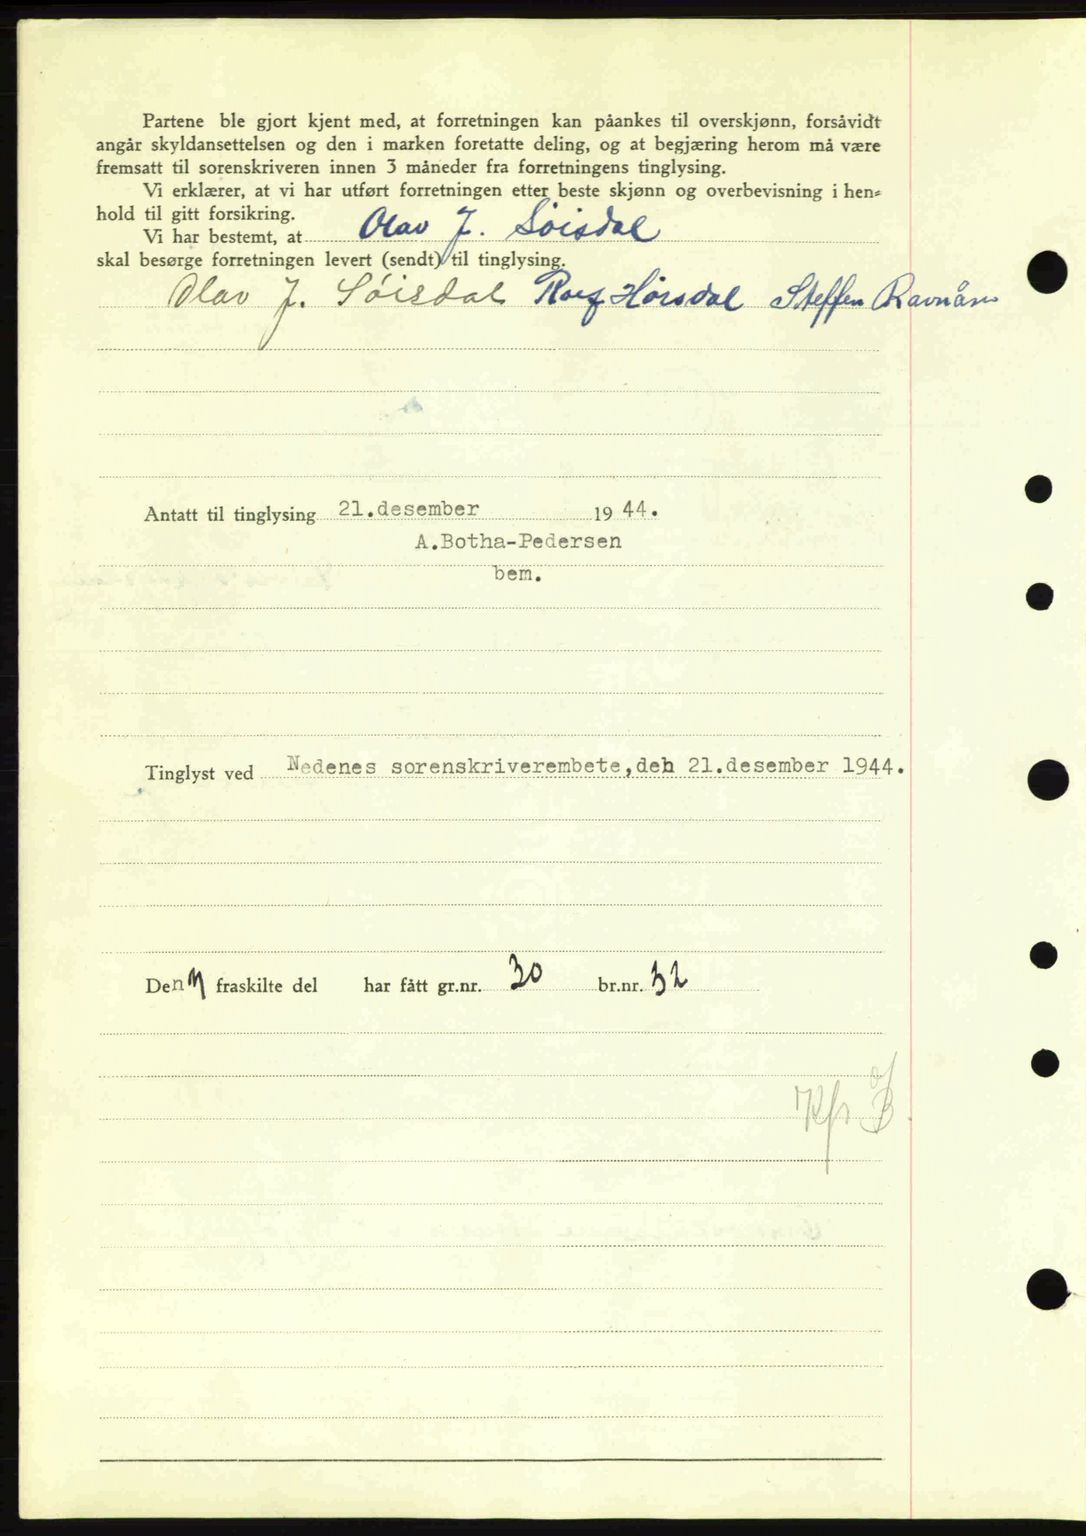 Partene ble gjort kjent med, at forretningen kan påankes til overskjønn, forsåvidt
angår skyldansettelsen og den i marken foretatte deling, og at begjæring herom må være
fremsatt til sorenskriveren innen 3 måneder fra forretningens tinglysing.
Vi erklærer, at vi har utført forretningen etter beste skjønn og overbevisning i hen-
hold til gitt forsikring.
Vi har bestemt, at Olav J. Søisdal
skal besørge forretningen levert (sendt) til tinglysing.
Olav J. Søisdal Rolf Hørsdal Steffen Ravnåsen
Antatt til tinglysing 21.desember 19 44.
A.Botha-Pedersen
bem.
Tinglyst ved Nedenes sorenskriverembete, den 21.desember 1944.
Den fraskilte del har fått gr.nr. 30 br.nr. 32